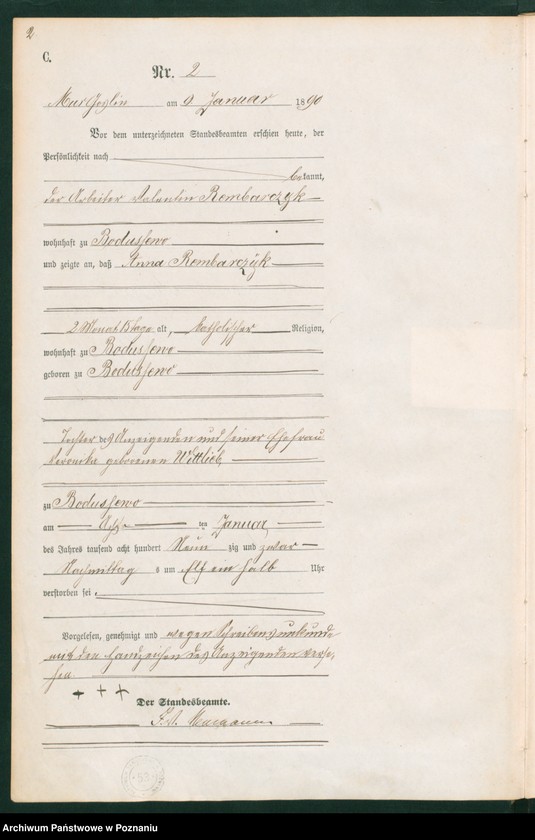 2
C.
Nr. 2
am 9. Januar 1890
Vor dem unterzeichneten Standesbeamten erschien heute, der
Persönlichkeit nach
bekannt,
der Arbeiter Valentin Rembarczyk
wohnhaft zu Boduschewo
und zeigte an, daß Anna Rembarczyk
2 Monat 15 Tage alt, katholischer Religion,
wohnhaft zu Boduschewo
geboren zu Boduschewo
Tochter des Anzeigenden und seiner Ehefrau
Veronika geborenen Wittlieb
zu Boduschewo
am Acht ten Januar
des Jahres tausend acht hundert Neun zig und zwar
Nachmittag s um elf ein halb Uhr
verstorben sei.
Vorgelesen, genehmigt und wegen Schreibensunkunde
mit den Handzeichen des Anzeigenden verse-
hen.
+ + +
Der Standesbeamte.
Archiwum Państwowe w Poznaniu